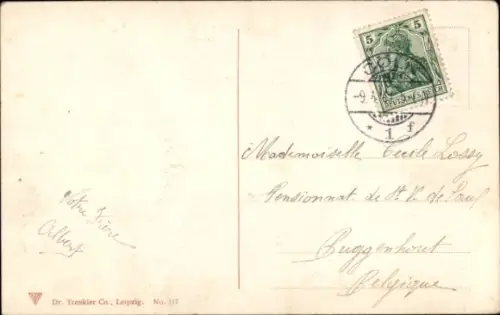 5 5
DEUTSCHES REICH
* 1 f
Mademoiselle Cecile Lossy
Pensionnat de St V. de Paul
Buggenhout
Belgique
Votre frère
Albert
Dr. Trenkler Co., Leipzig. No.